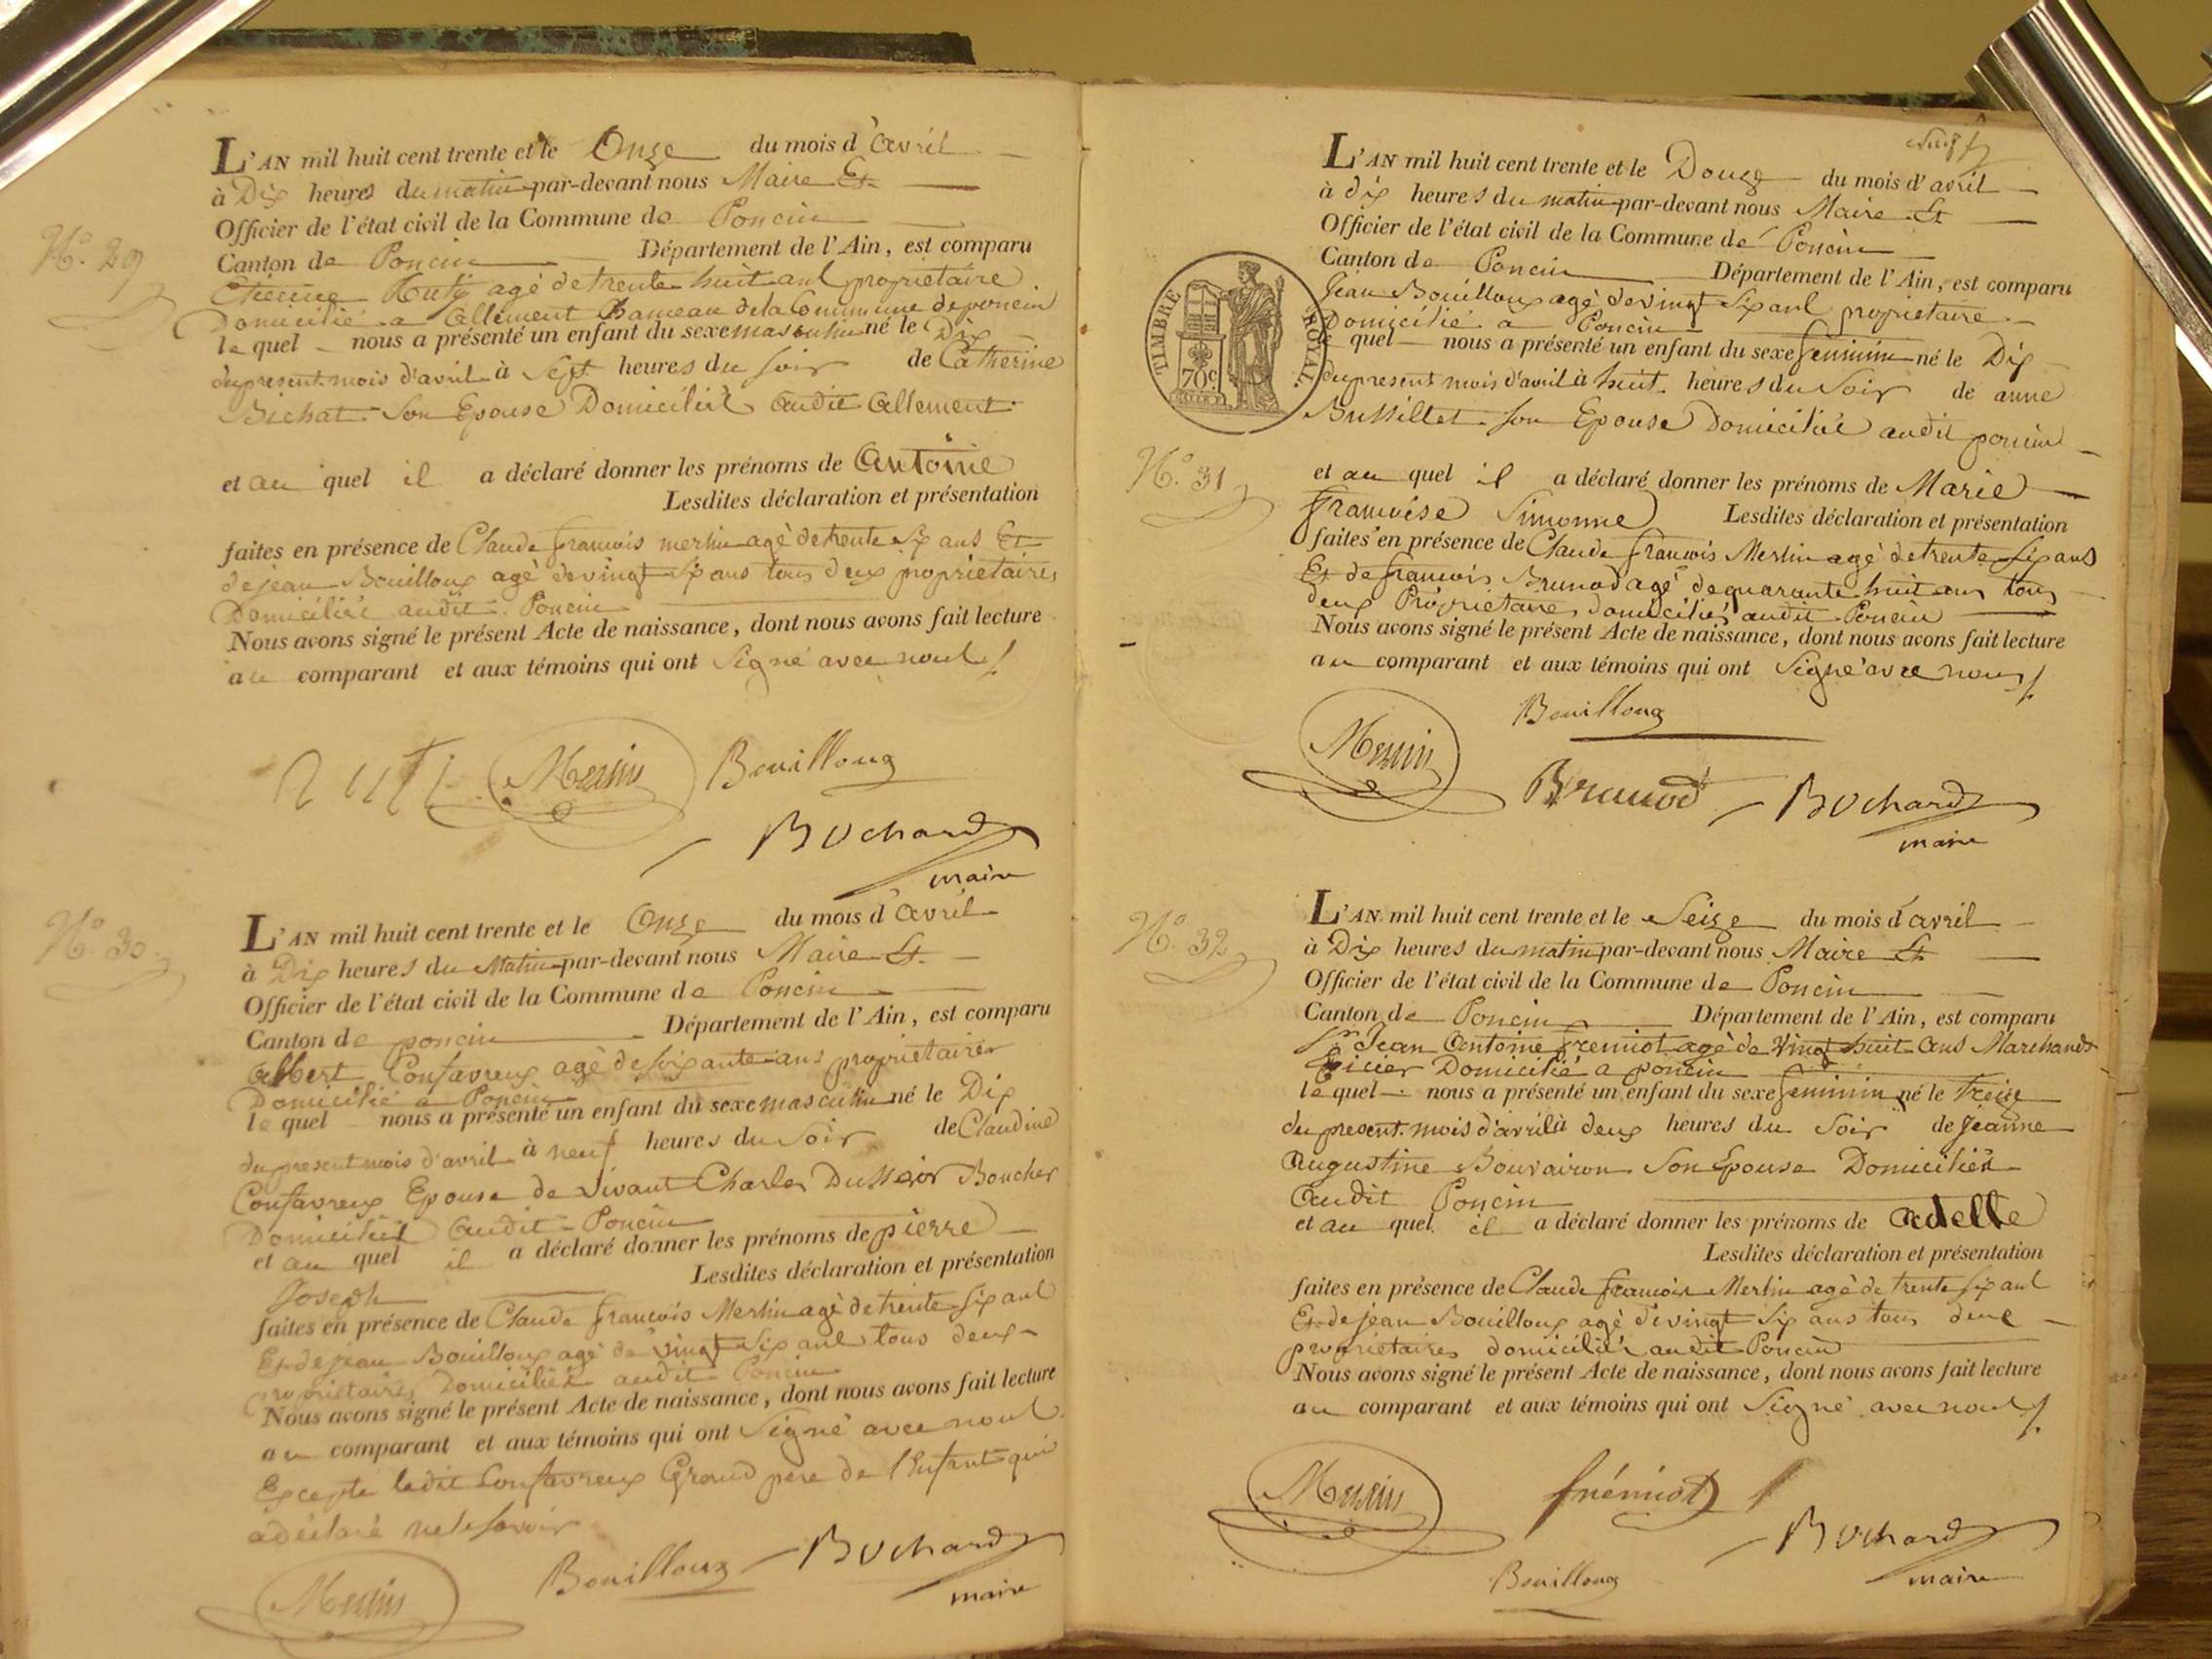 N.º 29
L'AN mil huit cent trente et le Onze du mois d'avril
à Dix heures du matin par-devant nous Maire Et
Officier de l'état civil de la Commune de Poncin
Canton de Poncin Département de l'Ain, est comparu
Etienne Ruty agé de trente huit ans propriétaire
Domicilié a Allement hameau de la Commune de poncin
le quel nous a présenté un enfant du sexe masculin né le Dix
du present mois d'avril à Sept heures du soir de Catherine
Bichat Son Epouse Domiciliée audit Allement
et au quel il a déclaré donner les prénoms de Antoine
Lesdites déclaration et présentation
faites en présence de Claude francois merlin agé de trente six ans Et
de jean Bouilloux agé de vingt six ans tous deux propriétaires
Domiciliés audit Poncin
Nous avons signé le présent Acte de naissance, dont nous avons fait lecture
au comparant et aux témoins qui ont Signé avec nous
Ruty Merlin Bouilloux
Bochard
maire
N.º 30.
L'AN mil huit cent trente et le Onze du mois d'avril
à Dix heures du Matin par-devant nous Maire Et
Officier de l'état civil de la Commune de Poncin
Canton de poncin Département de l'Ain, est comparu
Albert Confavreux agé de soixante ans propriétaire
Domicilié a Poncin
le quel nous a présenté un enfant du sexe masculin né le Dix
du present mois d'avril à neuf heures du Soir de Claudine
Confavreux Epouse de vivant Charles Boucher
Domicilié audit Poncin
et au quel il a déclaré donner les prénoms de pierre
Joseph Lesdites déclaration et présentation
faites en présence de Claude francois Merlin agé de trente six ans
Et de jean Bouilloux agé de vingt six ans tous deux
propriétaires Domiciliés audit Poncin
Nous avons signé le présent Acte de naissance, dont nous avons fait lecture
au comparant et aux témoins qui ont Signé avec nous
Excepté ledit Confavreux Grand pere de l'Enfant qui
a déclaré ne le savoir
Merlin Bouilloux Bochard
maire
L'AN mil huit cent trente et le Douze du mois d'avril
à dix heures du matin par-devant nous Maire Et
Officier de l'état civil de la Commune de Poncin
Canton de Poncin Département de l'Ain, est comparu
Jean Bouilloux agé de vingt six ans propriétaire
Domicilié a Poncin
le quel nous a présenté un enfant du sexe feminin né le Dix
du present mois d'avril à huit heures du Soir de anne
Bussillet son Epouse Domiciliée audit poncin
TIMBRE ROYAL.
70c
N.º 31
et au quel il a déclaré donner les prénoms de Marie
francoise Simonne Lesdites déclaration et présentation
faites en présence de Claude francois Merlin agé de trente six ans
Et de francois Brunod agé de quarante huit ans tous
deux Propriétaires domiciliés audit Poncin
Nous avons signé le présent Acte de naissance, dont nous avons fait lecture
au comparant et aux témoins qui ont Signé avec nous
Bouilloux
Merlin Brunod Bochard
maire
N.º 32
L'AN mil huit cent trente et le Seize du mois d'avril
à Dix heures du matin par-devant nous Maire Et
Officier de l'état civil de la Commune de Poncin
Canton de Poncin Département de l'Ain, est comparu
Sr Jean Antoine fremiot agé de vingt huit ans Marchand
Epicier Domicilié a poncin
le quel nous a présenté un enfant du sexe feminin né le Treize
du present mois d'avril à deux heures du Soir de Jeanne
Augustine Bouvairon Son Epouse Domiciliée
audit Poncin
et au quel il a déclaré donner les prénoms de adelle
Lesdites déclaration et présentation
faites en présence de Claude francois Merlin agé de trente six ans
Et de jean Bouilloux agé de vingt six ans tous deux
propriétaires domiciliés audit Poncin
Nous avons signé le présent Acte de naissance, dont nous avons fait lecture
au comparant et aux témoins qui ont Signé avec nous
Merlin frémiot
Bouilloux Bochard
maire